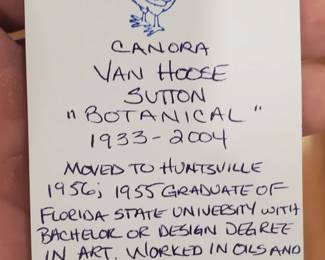 CANORA
VAN HOOSE
SUTTON
"BOTANICAL"
1933-2004
MOVED TO HUNTSVILLE
1956; 1955 GRADUATE OF
FLORIDA STATE UNIVERSITY WITH
BACHELOR OR DESIGN DEGREE
IN ART. WORKED IN OILS AND